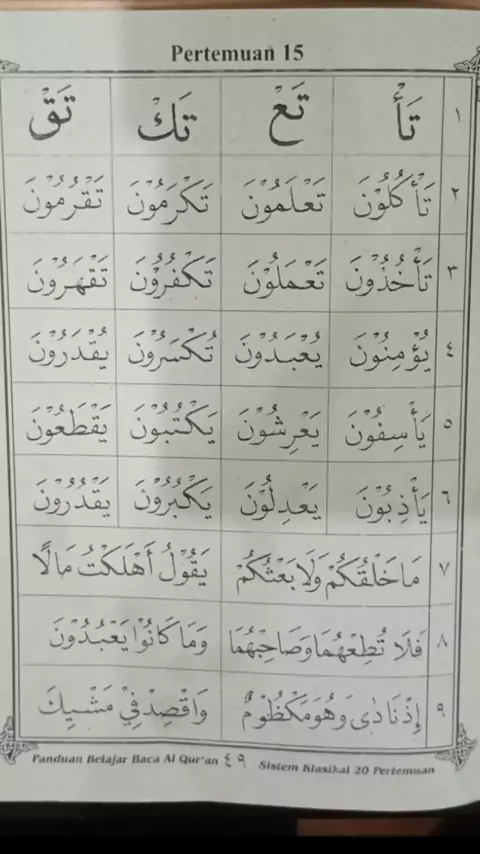 Pertemuan 15
١ تَأْ تَعْ تَكْ تَقْ
٢ تَأْكُلُوْنَ تَعْلَمُوْنَ تَكْرَمُوْنَ تَقْرُمُوْنَ
٣ تَأْخُذُوْنَ تَعْمَلُوْنَ تَكْفُرُوْنَ تَقْهَرُوْنَ
٤ يُؤْمِنُوْنَ يُعْبَدُوْنَ تُكْسَرُوْنَ يُقْدَرُوْنَ
٥ يَأْسِفُوْنَ يَعْرِشُوْنَ يَكْتُبُوْنَ يَقْطَعُوْنَ
٦ يَأْذِبُوْنَ يَعْدِلُوْنَ يَكْبُرُوْنَ يَقْدُرُوْنَ
٧ مَاخَلْقُكُمْ وَلَابَعْثُكُمْ يَقُوْلُ أَهْلَكْتُ مَالًا
٨ فَلَا تُطِعْهُمَا وَصَاحِبْهُمَا وَمَا كَانُوْا يَعْبُدُوْنَ
٩ إِذْنَادٰى وَهُوَمَكْظُوْمٌ وَاقْصِدْفِيْ مَشْيِكَ
Panduan Belajar Baca Al Qur'an ٤٩ Sistem Klasikal 20 Pertemuan